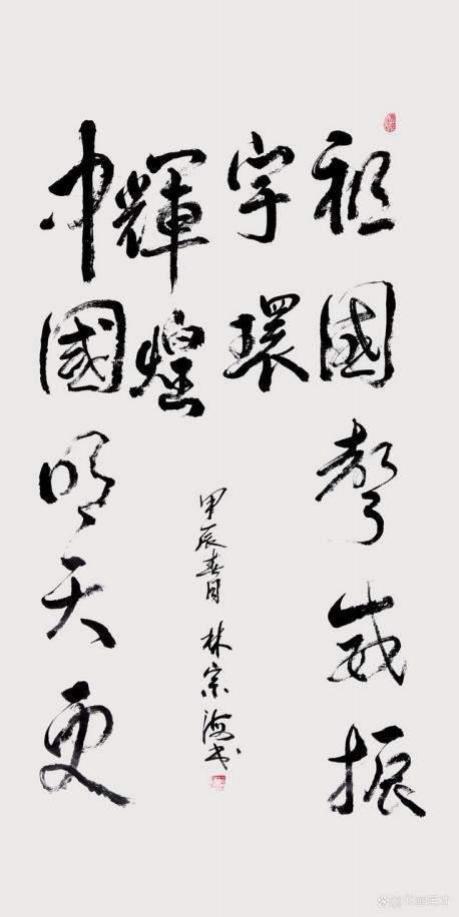 祖國聲威振
宇環
中國明天更
輝煌
甲辰春月 林宗海书